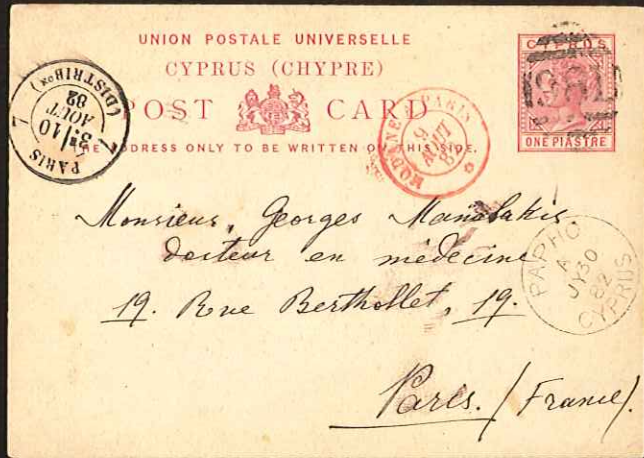 UNION POSTALE UNIVERSELLE
CYPRUS (CHYPRE)
POST CARD
THE ADDRESS ONLY TO BE WRITTEN ON THIS SIDE.
CYPRUS
ONE PIASTRE
981
PARIS 7
3E/10
AOUT
82
(DISTRIBON)
MODANE PARIS
9
AOUT
8
PAPHO
A
JY 30
82
CYPRUS
Monsieur, Georges Manolakis
docteur en médecine
19. Rue Berthollet, 19.
Paris. (France)